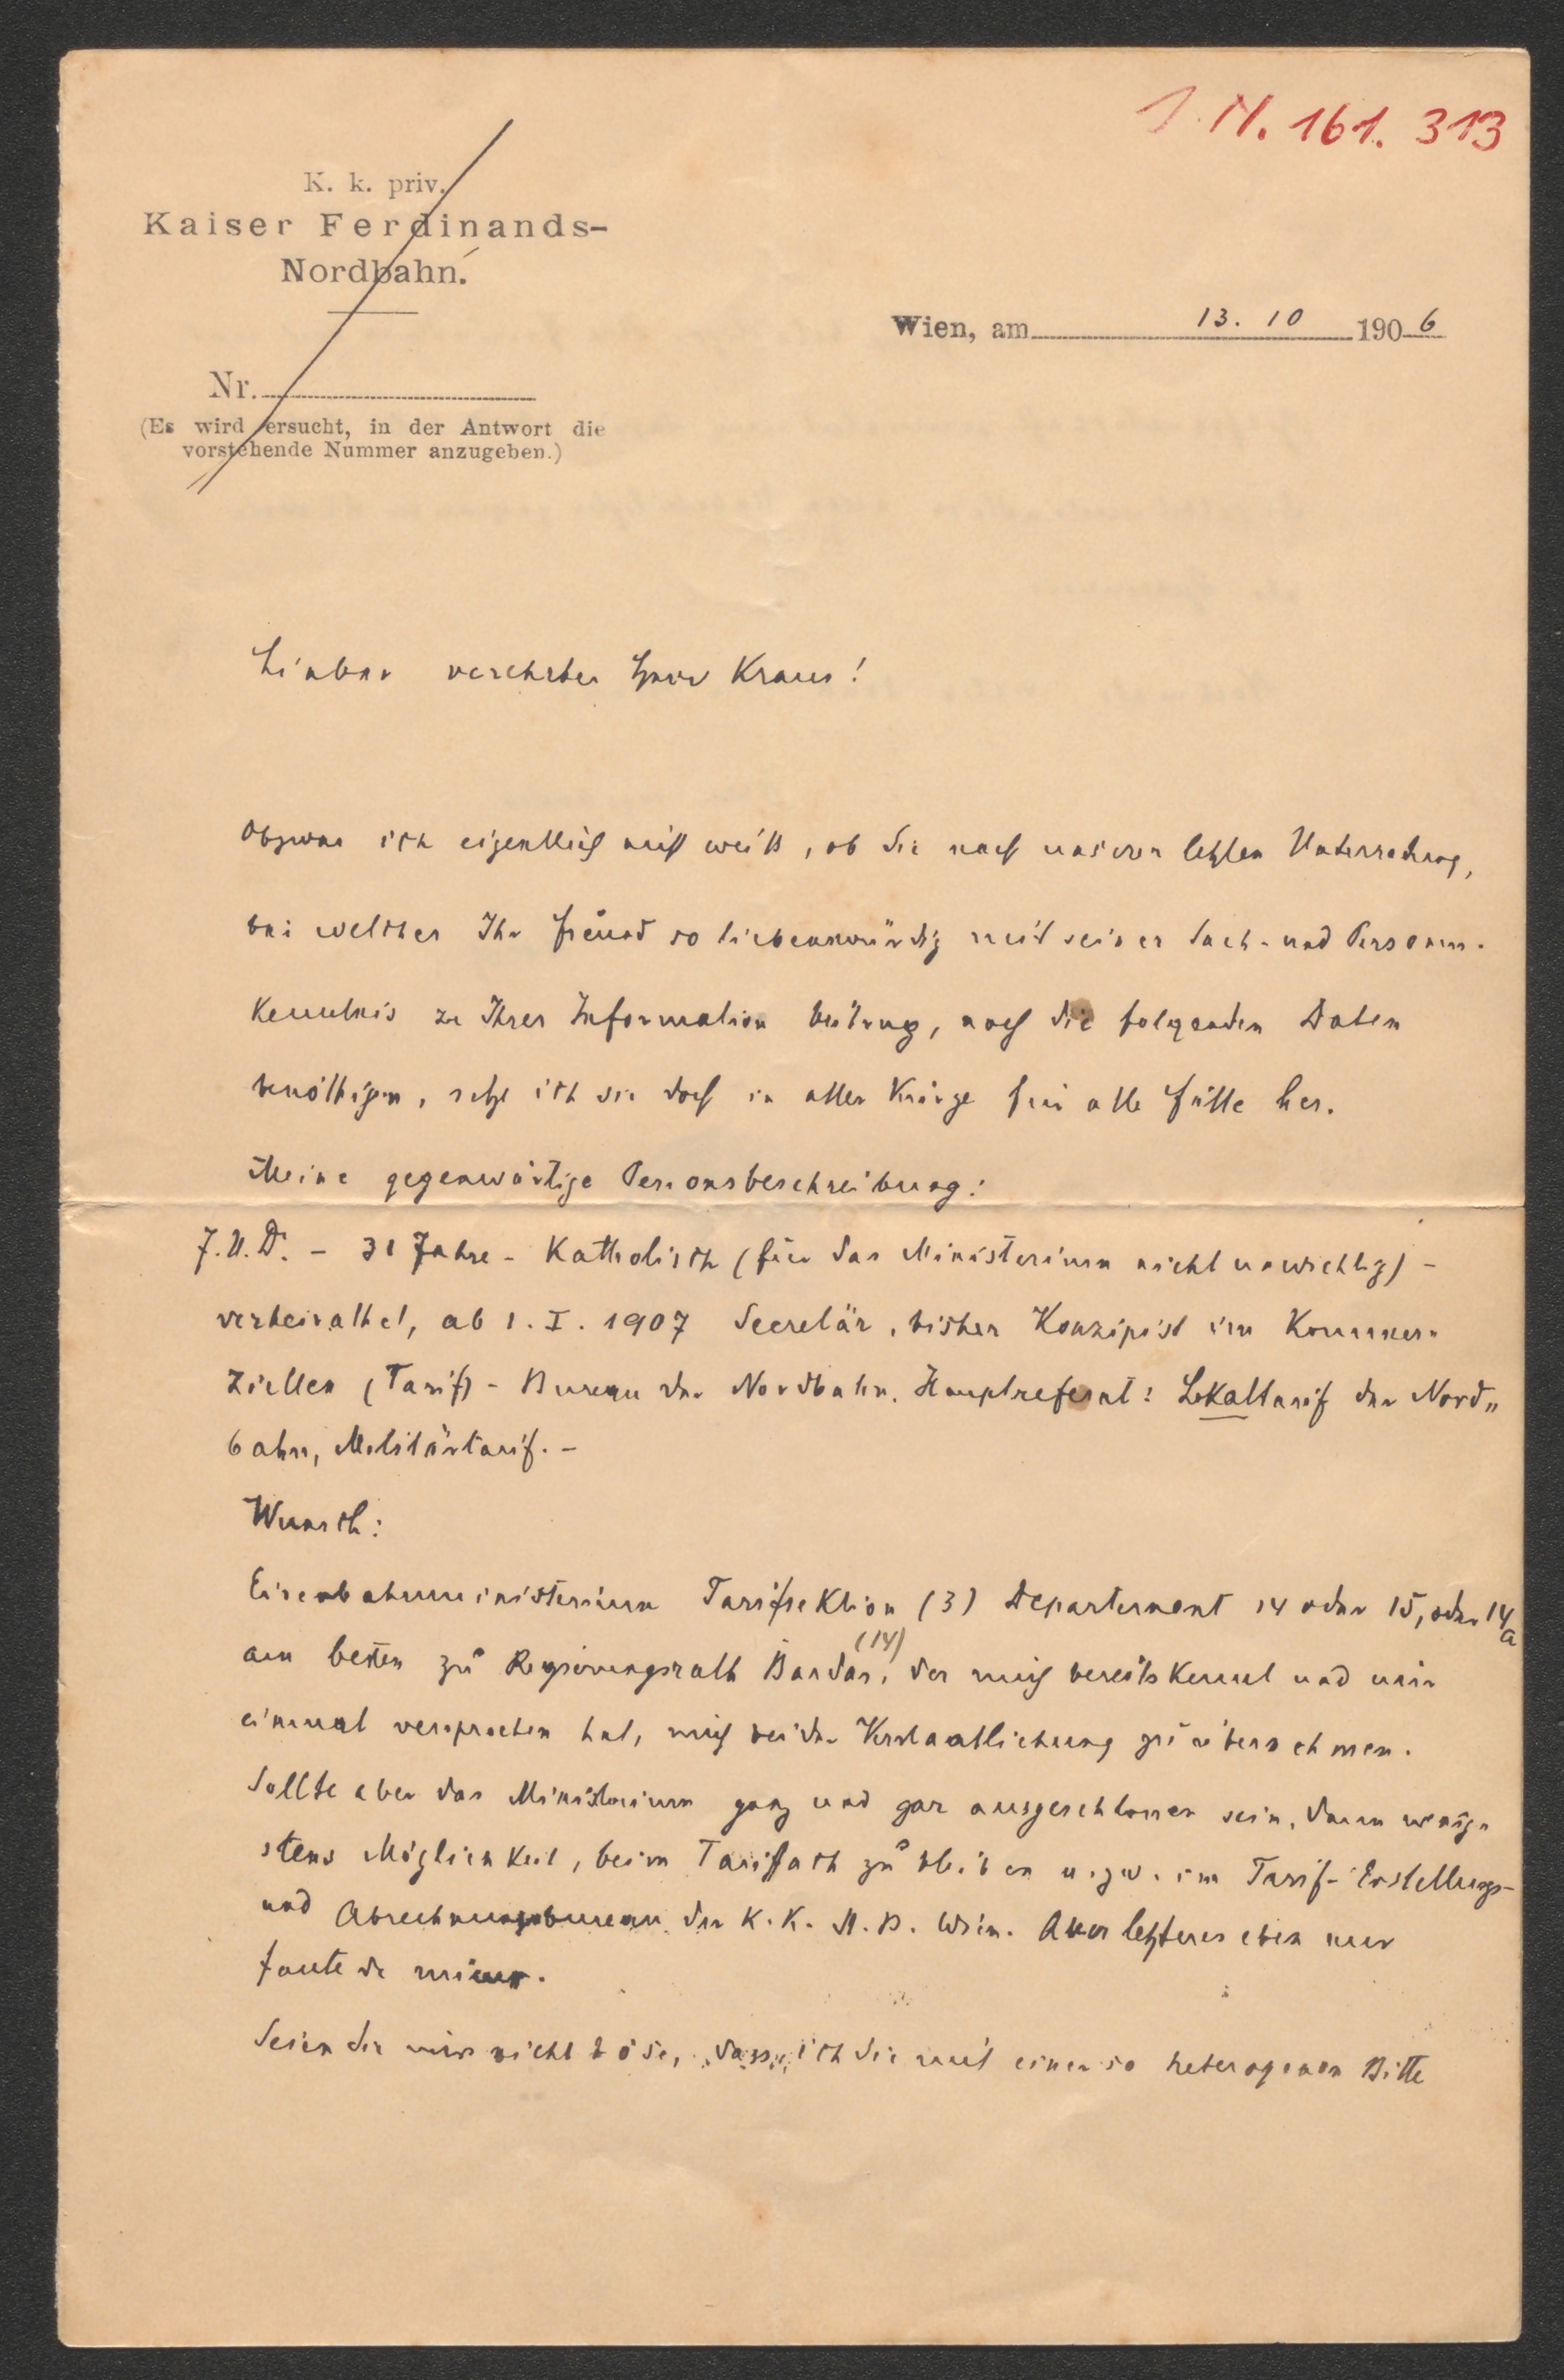 I. N. 161. 313
K. k. priv.
Kaiser Ferdinands-
Nordbahn.
Wien, am 13. 10 1906
Nr.
(Es wird ersucht, in der Antwort die
vorstehende Nummer anzugeben.)
Lieber verehrter Herr Kraus!
Obzwar ich eigentlich nicht weiß, ob Sie nach unserer letzten Unterredung,
bei welcher Ihr Freund so liebenswürdig mit seiner Sach- und Personen-
Kenntnis zu Ihrer Information beitrug, noch die folgenden Daten
benöthigen, setze ich sie doch in aller Kürze für alle Fälle her.
Meine gegenwärtige Personsbeschreibung:
J. U. D. – 31 Jahre – Katholisch (für das Ministerium nicht unwichtig) –
verheirathet, ab 1. I. 1907 Secretär, bisher Konzipist im Kommer-
ziellen (Tarif) – Bureau der Nordbahn. Hauptreferat: Lokaltarif der Nord„
bahn, Militärtarif. –
Wunsch:
Eisenbahnministerium Tarifsektion (3) Departement 14 oder 15, oder 14/a
am besten zu Regierungsrath (14) der mich bereits kennt und mir
einmal versprochen hat, mich bei der Verstaatlichung zu übernehmen.
Sollte aber das Ministerium ganz und gar ausgeschlossen sein, dann wenig-
stens Möglichkeit, beim Tariffach zu bleiben u. zw. im Tarif-Erstellungs-
und Abrechnungsbureau der K. K. N. B. Wien. Aber letzteres eben nur
faute de mieux.
Seien Sie mir nicht böse, dass ich Sie mit einer so heterogenen Bitte